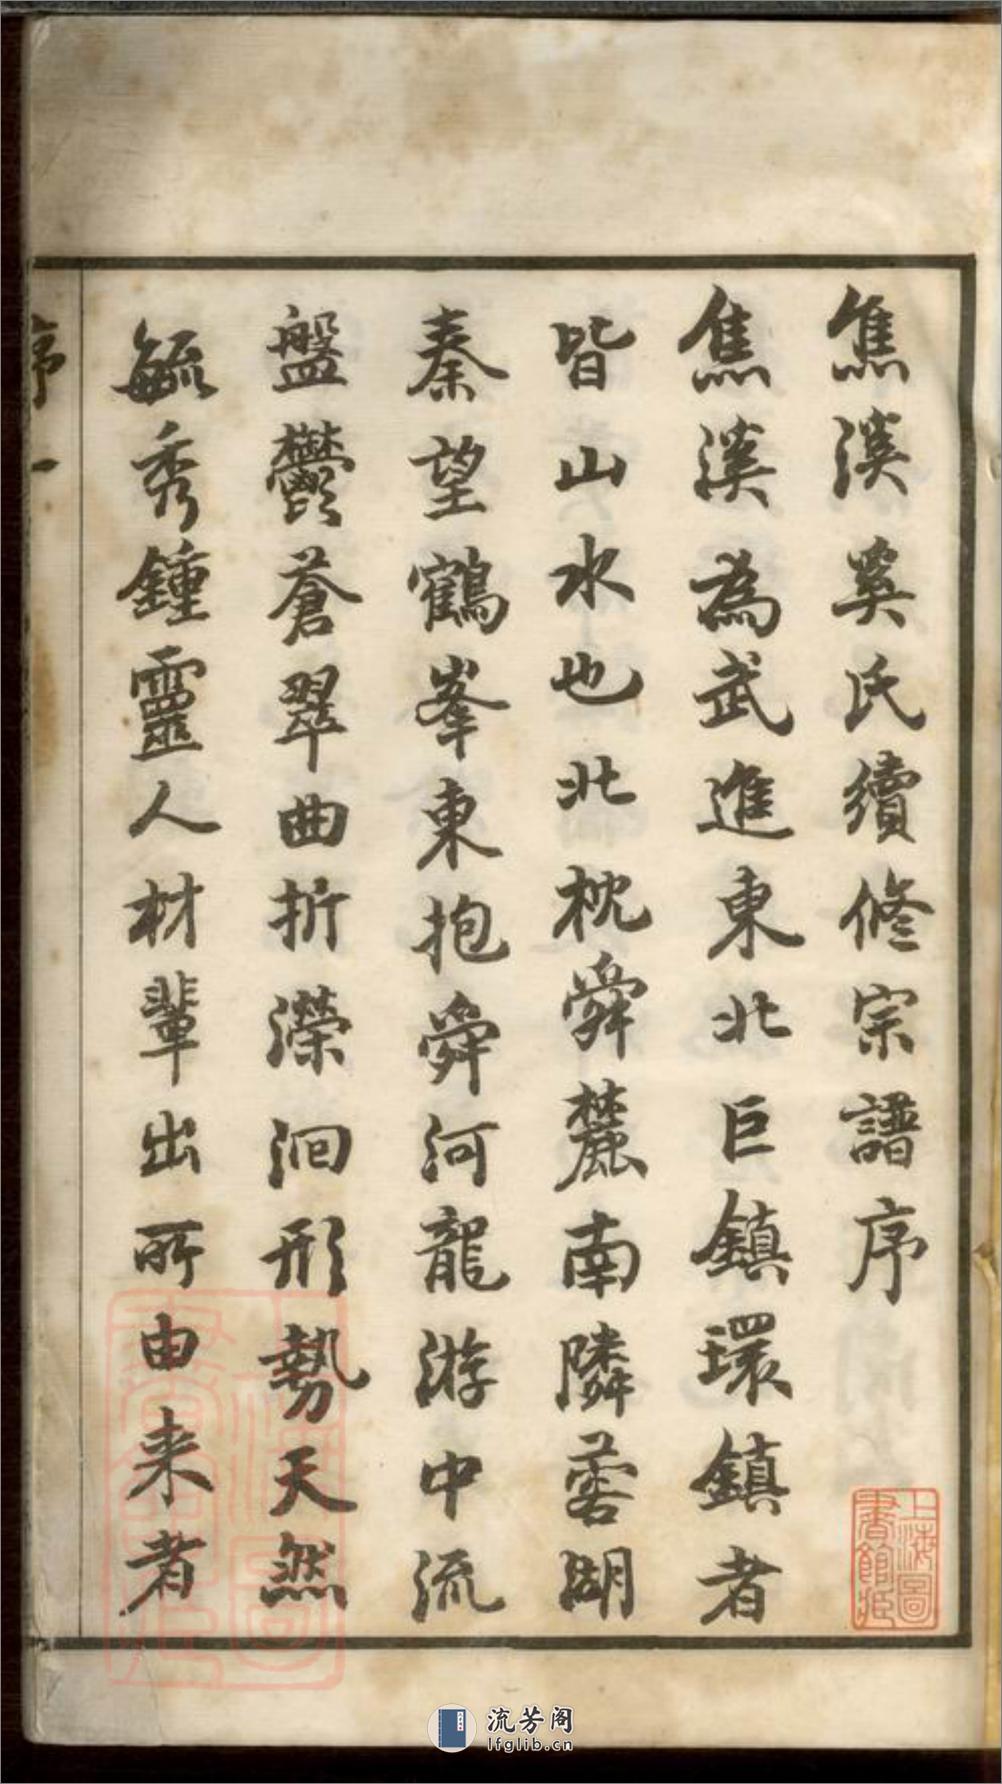 焦溪奚氏續修宗譜序
焦溪為武進東北巨鎮環鎮者
皆山水也北枕舜麓南隣蓉湖
秦望鶴峯東抱舜河龍游中流
盤鬱蒼翠曲折濴洄形勢天然
毓秀鍾靈人材輩出所由来者
序 一
上海圖書館藏
上海圖書館藏
流芳阁
lfglib.cn